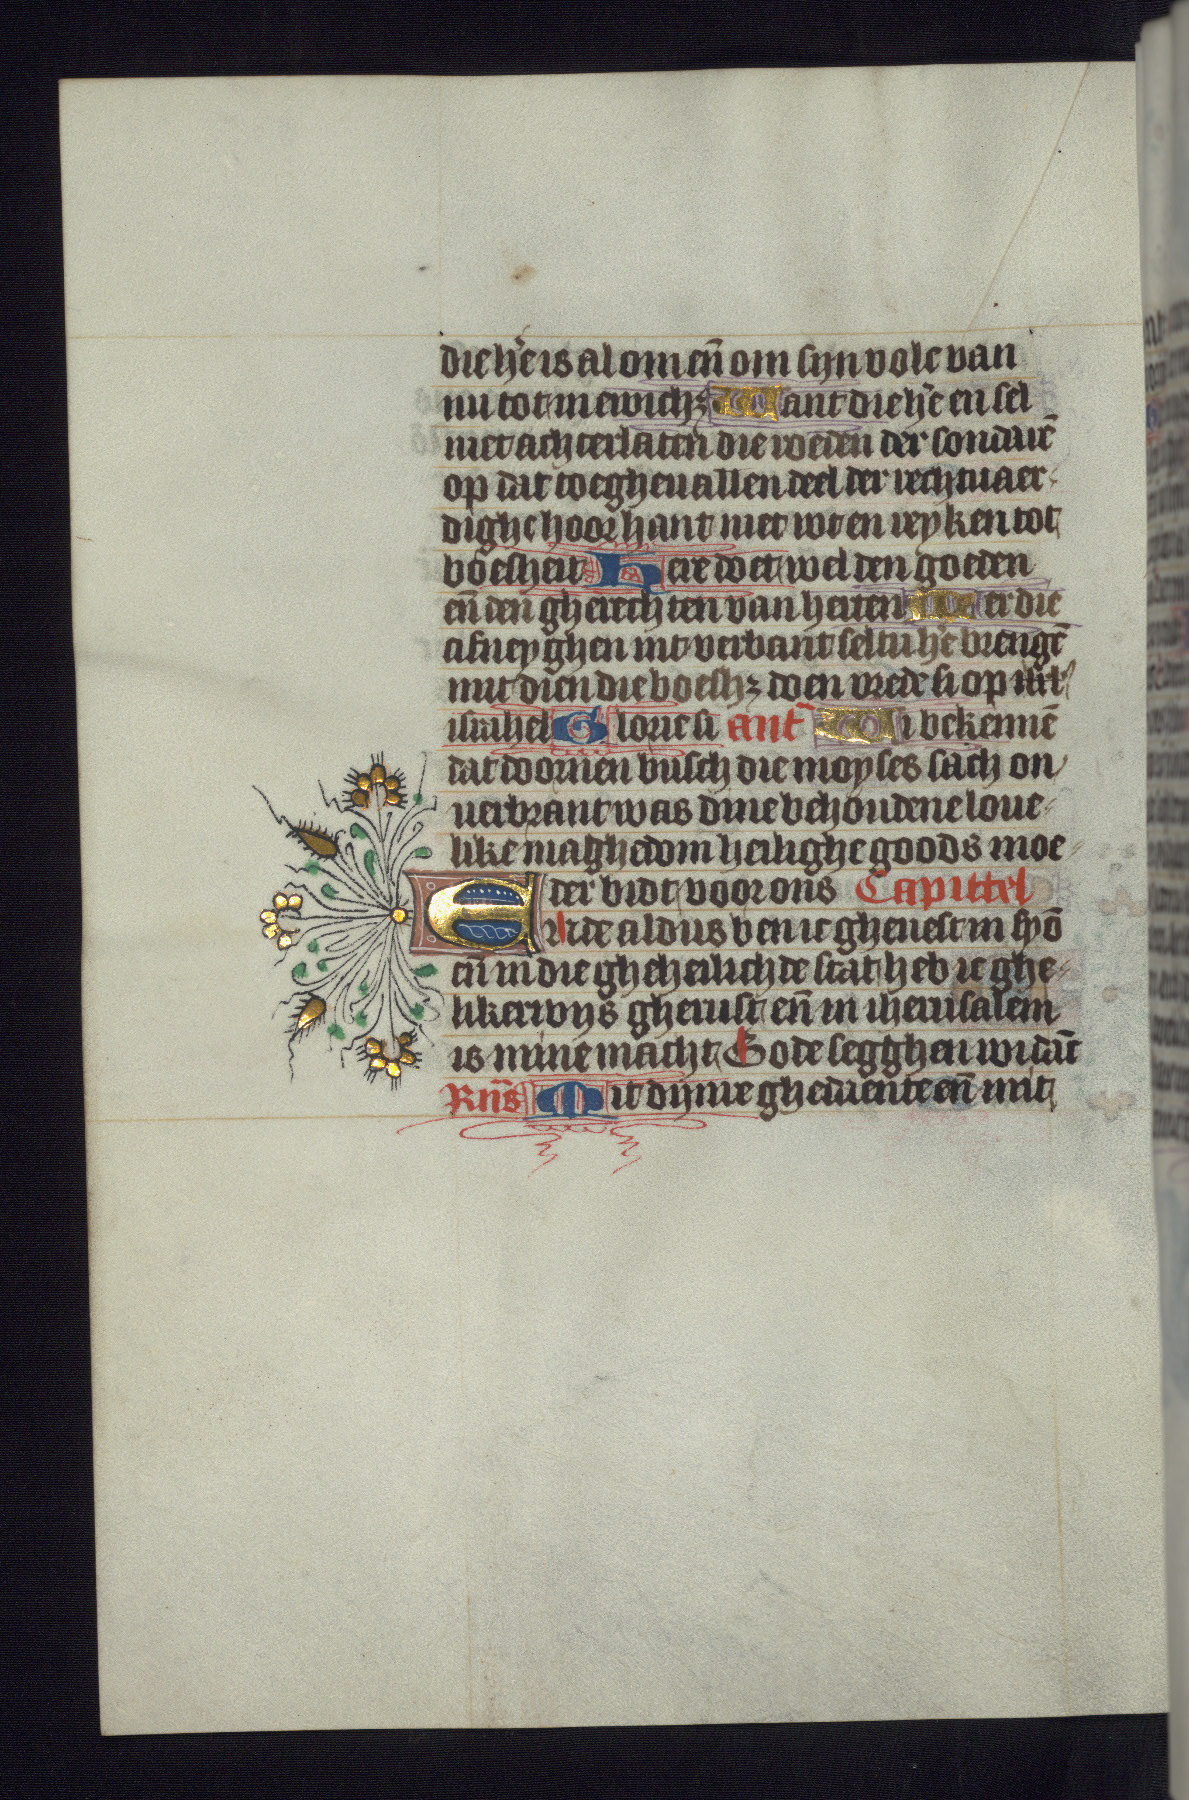 die hr̄e is al om en̄ om syn volc van
nu tot in ewich₃ Want die hr̄e en sel
niet achterlaten die roeden der sondarē
op dat deel der rechtuaer-
dighe hoor hant niet wten reyken tot
boesheit Here doet wel den goeden
en̄ den gherechten van herten Mer die
afneyghen int verbant seltu hr̄e brengē
mit dien die boesh₃ doen vrede si op
israhel Glorie si ant̄ Wi bekennē
dat doornen busch die moyses sach on
uerbrant was dine behoudene loue-
like maghedom heilighe goods moe-
der bidt voor ons Capittel
Ende aldus ben ic gheuest in syō
en̄ in die gheheilichde stat heb ic ghe-
likerwijs gherust en̄ in iherusalem
is mine macht Gode segghen wi danc
Rn̄s Mit dijnre ghedaente en̄ mit